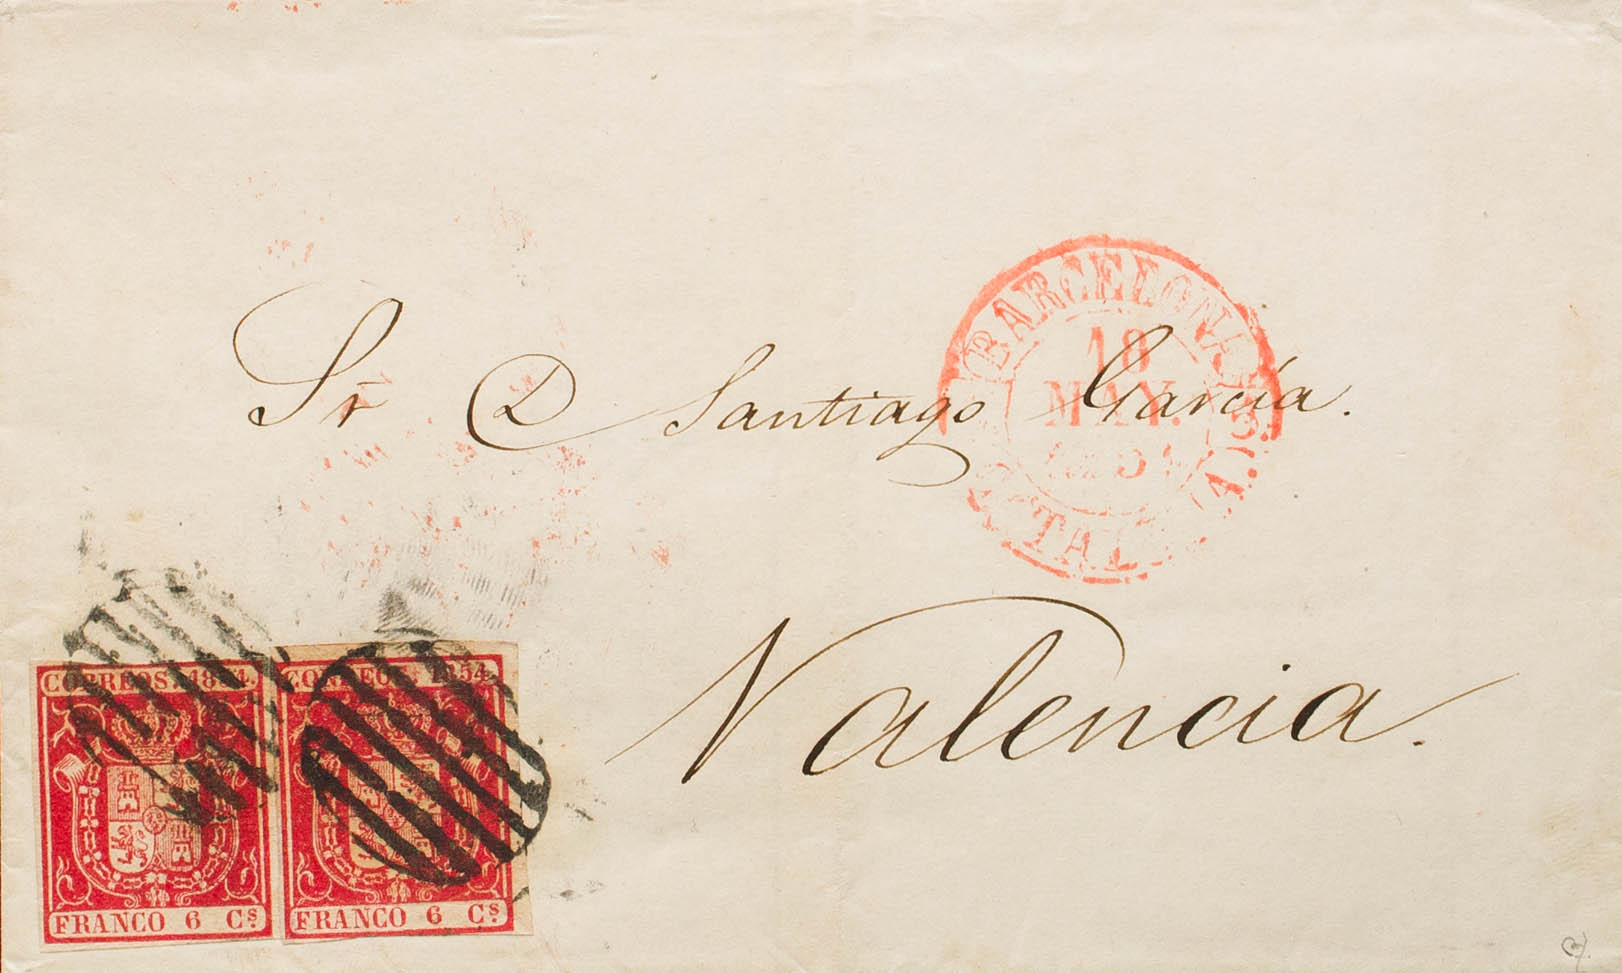 BARCELONA
18
MAY.
Sr D Santiago García.
Valencia.
CORREOS. 1854. CORREOS. 1854.
FRANCO 6 Cs. FRANCO 6 Cs.